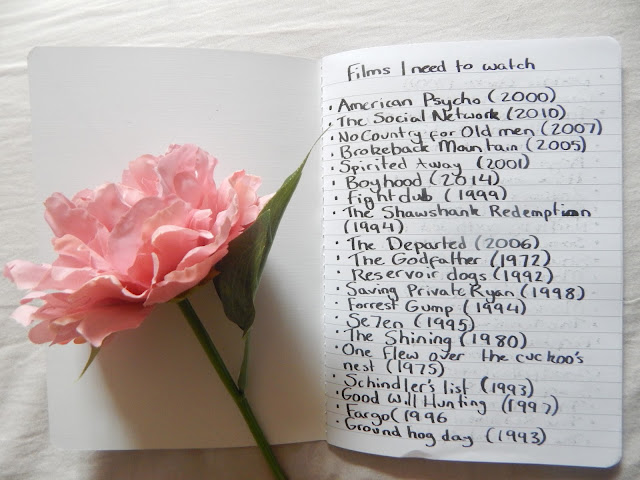 films I need to watch
• American Psycho (2000)
• The Social Network (2010)
• No Country for Old men (2007)
• Brokeback Mountain (2005)
• Spirited Away (2001)
• Boyhood (2014)
• Fight club (1999)
• The Shawshank Redemption
(1994)
• The Departed (2006)
• The Godfather (1972)
• Reservoir dogs (1992)
• Saving Private Ryan (1998)
• Forrest Gump (1994)
• Se7en (1995)
• The Shining (1980)
• One flew over the cuckoo's
nest (1975)
• Schindler's list (1993)
• Good Will Hunting (1997)
• Fargo (1996
• Ground hog day (1993)